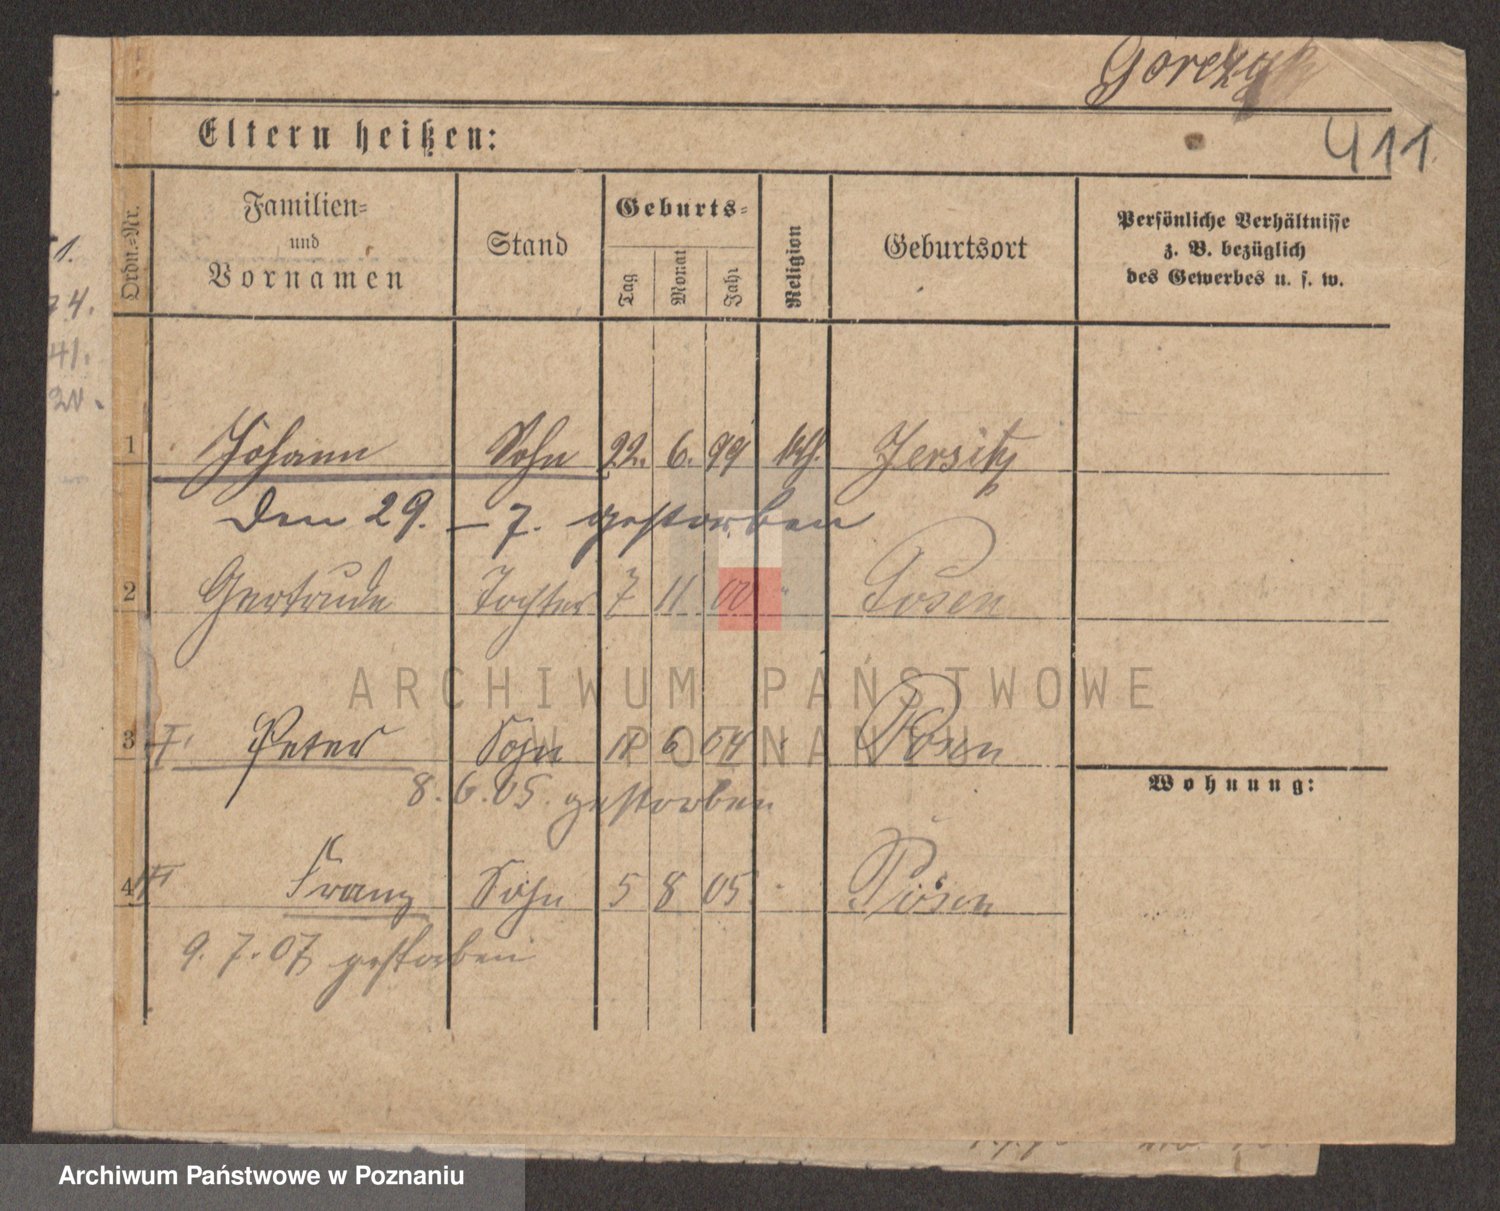 Gorczyk
411.
Eltern heißen:
Ordn.-Nr.
Familien-
und
Vornamen
Stand
Geburts-
Tag
Monat
Jahr
Religion
Geburtsort
Persönliche Verhältnisse
z. B. bezüglich
des Gewerbes u. s. w.
1 Johann Sohn 22. 6. 99 kth. Jersitz
Den 29. – 7. gestorben
2 Gertrude Tochter 7 11 00 " Posen
ARCHIWUM PAŃSTWOWE
W POZNANIU
3 Peter Sohn 6 04 Posen
8. 6. 05. gestorben
Wohnung:
4 Franz Sohn 5 8 05 Posen
9. 7. 07 gestorben
Archiwum Państwowe w Poznaniu